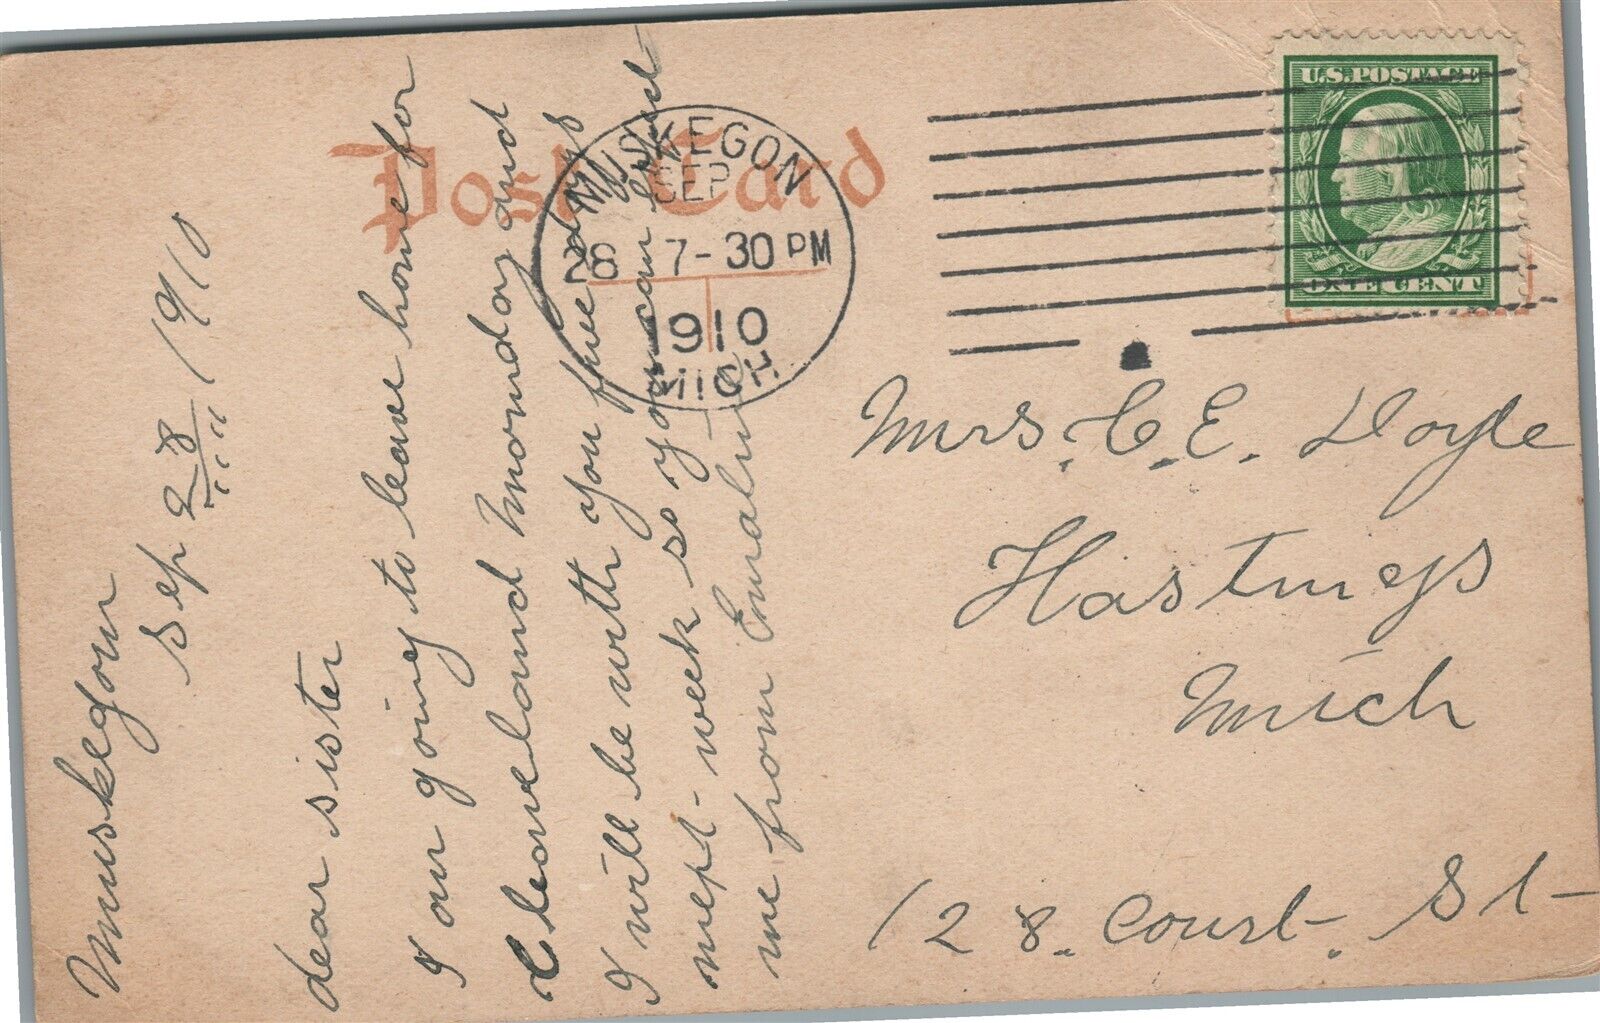 Post Card
MUSKEGON
SEP
28 7-30 PM
1910
MICH
U.S. POSTAGE
ONE CENT
Muskegon
Sep 28 1910
dear sister
I am going to leave home for
Cleaveland monday and
I will be with you few days
next week so you can expect
me from Emaline
Mrs. C. E. Doyle
Hastings
Mich
128. Court. St